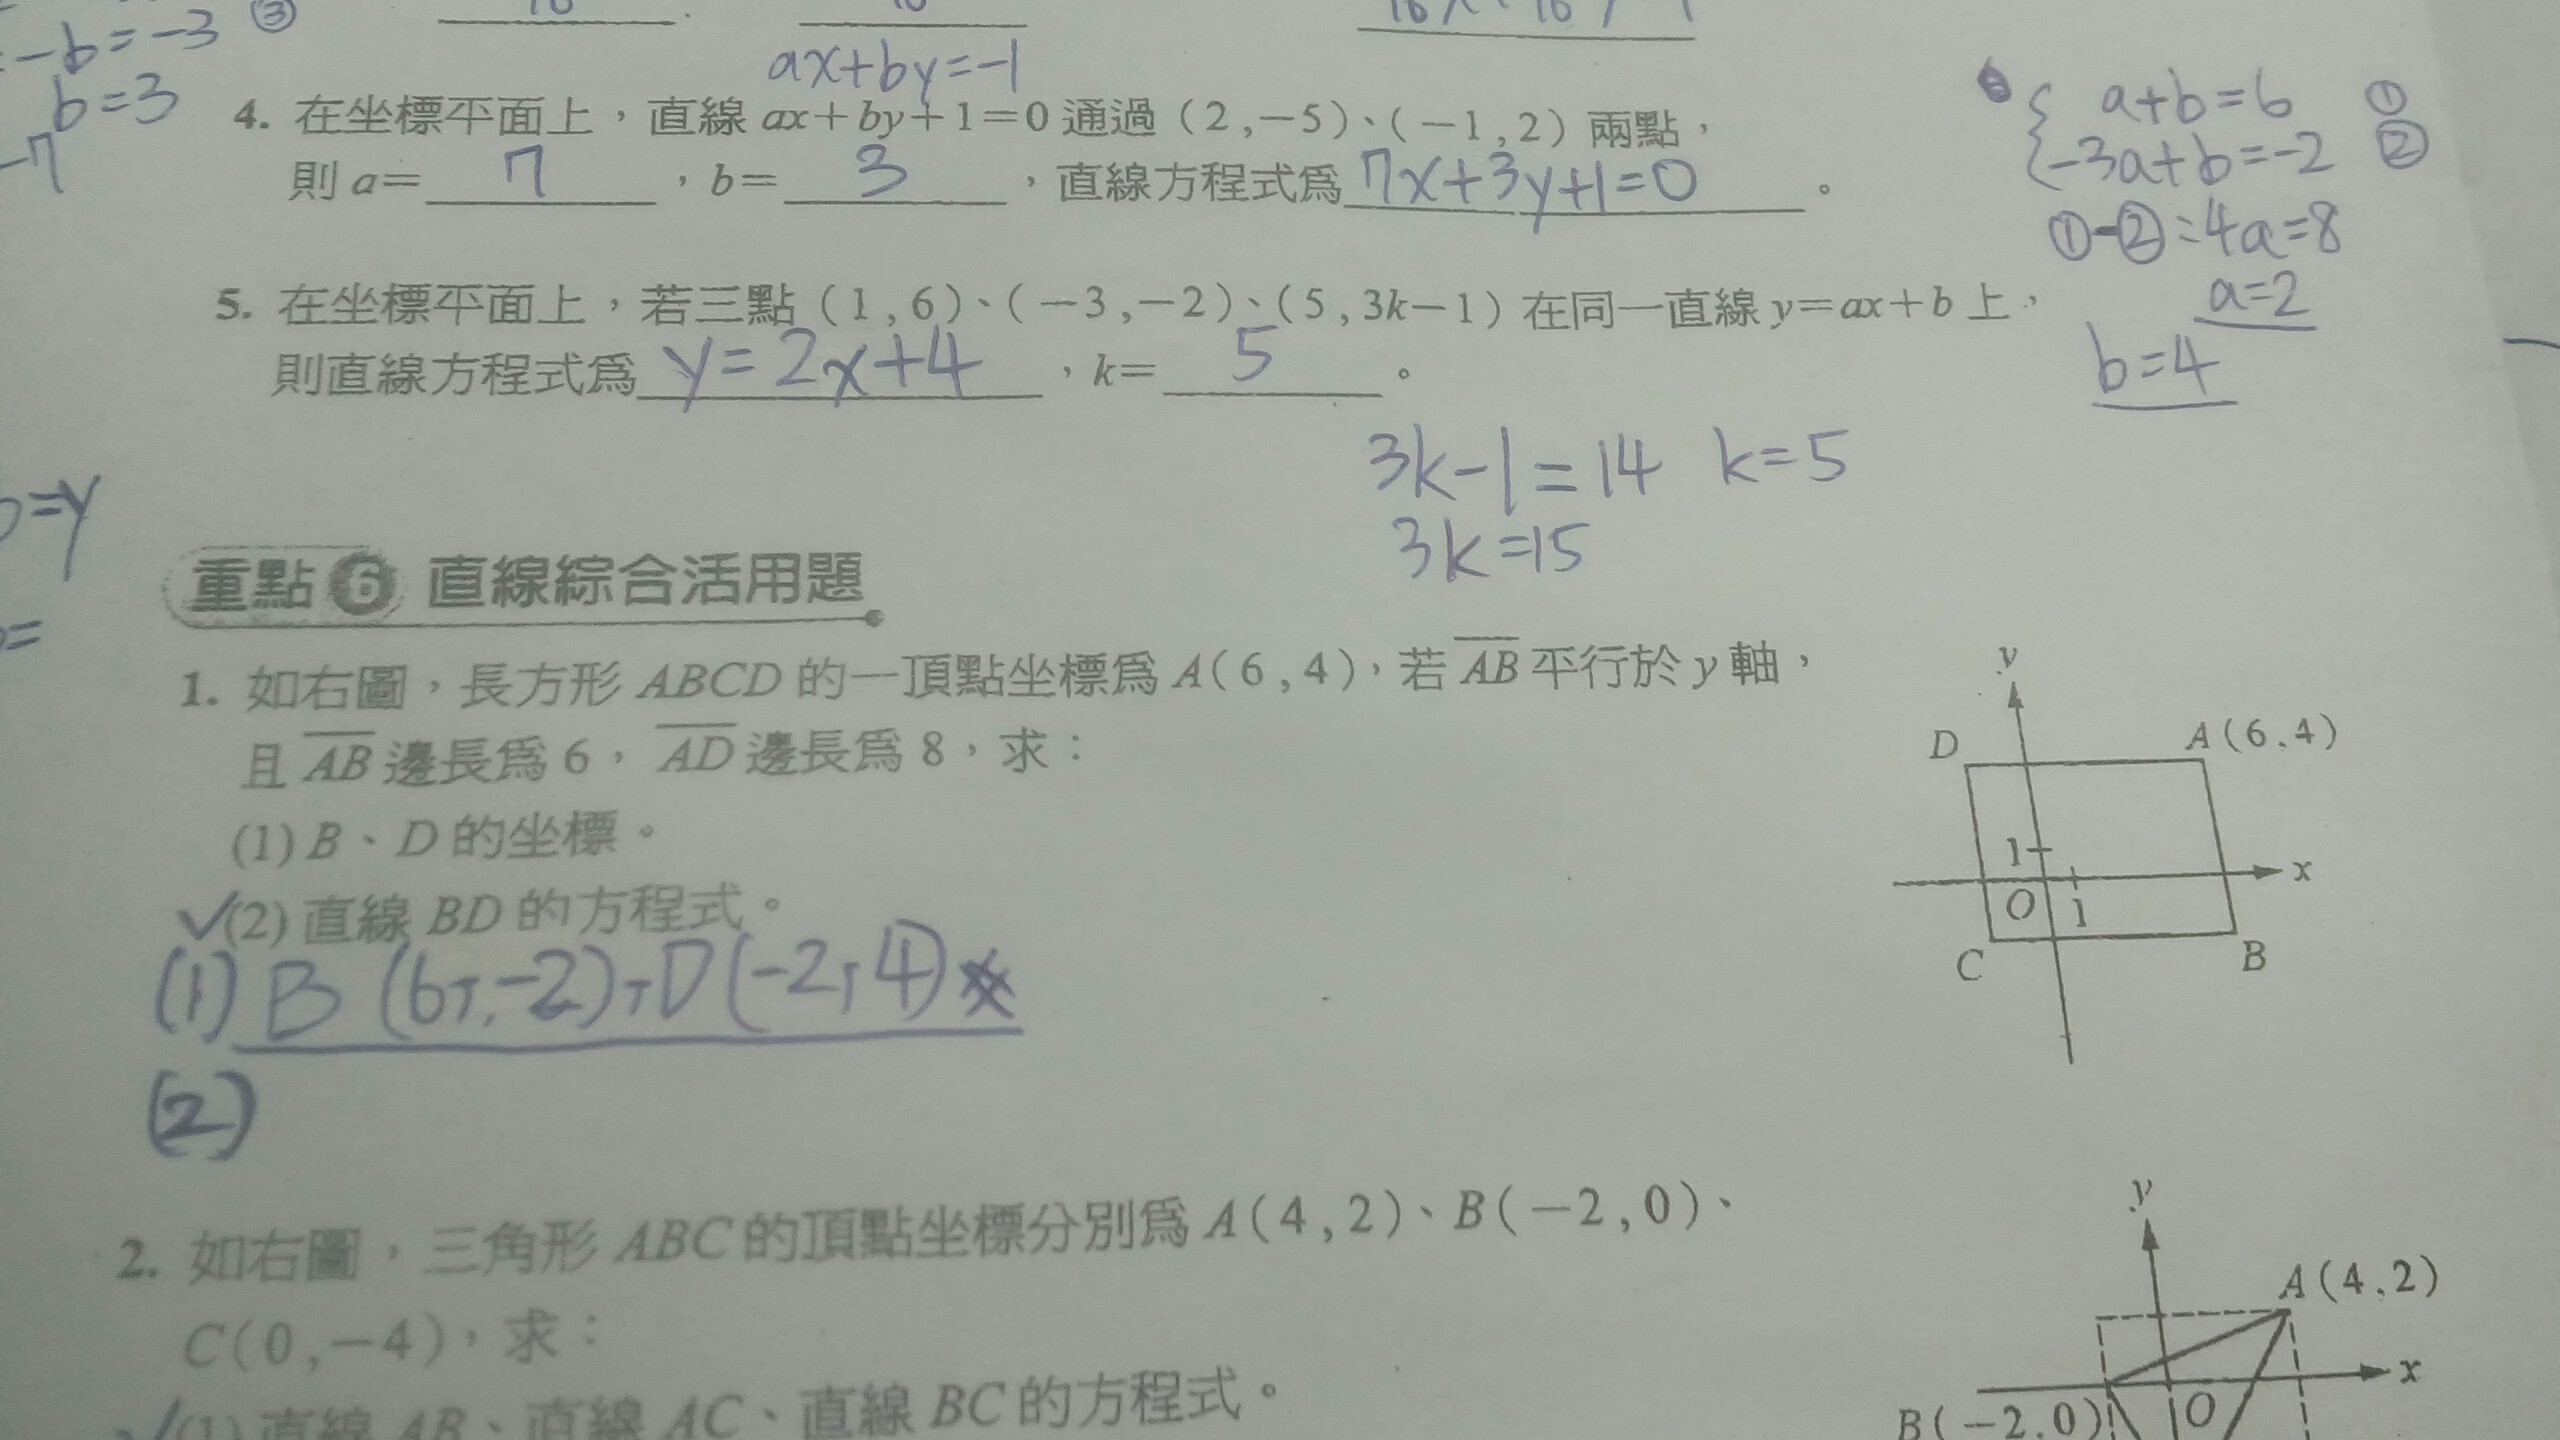 -b=-3 ③
b=3
-7
ax+by=-1
4. 在坐標平面上，直線 ax+by+1=0 通過（2,-5）、（-1,2）兩點，
則 a= 7 ，b= 3 ，直線方程式為 7x+3y+1=0 。
a+b=6 ①
-3a+b=-2 ②
①-②=4a=8
a=2
b=4
5. 在坐標平面上，若三點（1,6）、（-3,-2）、（5,3k-1）在同一直線 y=ax+b 上，
則直線方程式為 y=2x+4 ，k= 5 。
3k-1=14 k=5
3k=15
=y
=
重點 6 直線綜合活用題
1. 如右圖，長方形 ABCD 的一頂點坐標為 A（6,4），若 AB 平行於 y 軸，
且 AB 邊長為 6，AD 邊長為 8，求：
(1) B、D 的坐標。
✓(2) 直線 BD 的方程式。
(1) B (6,-2),D(-2,4)
(2)
y
D A(6,4)
1 x
O 1
C B
2. 如右圖，三角形 ABC 的頂點坐標分別為 A（4,2）、B（-2,0）、
C（0,-4），求：
✓(1) 直線 AB、直線 AC、直線 BC 的方程式。
y
A(4,2)
x
B(-2,0) O